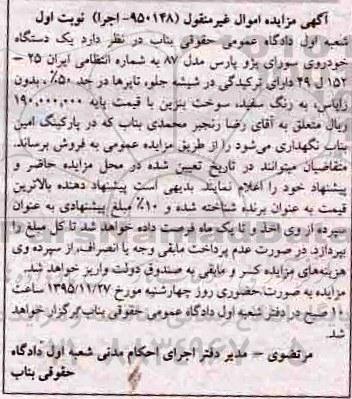 آگهی مزایده اموال غیرمنقول (۹۵۰۱۴۸- اجرا) نوبت اول
شعبه اول دادگاه عمومی حقوقی بناب در نظر دارد یک دستگاه
خودروی سورای پژو پارس مدل ۸۷ به شماره انتظامی ایران ۲۵ –
۱۵۲ ل ۴۹ دارای ترکیدگی در شیشه جلو، تایرها در حد ۵۰٪ ، بدون
زاپاس، به رنگ سفید، سوخت بنزین با قیمت پایه ۱۹۰,۰۰۰,۰۰۰
ریال متعلق به آقای رضا رنجبر محمدی بناب که در پارکینگ امین
بناب نگهداری می‌شود را از طریق مزایده عمومی به فروش برساند.
متقاضیان میتوانند در تاریخ تعیین شده در محل مزایده حاضر و
پیشنهاد خود را اعلام نمایند. بدیهی است پیشنهاد دهنده بالاترین
قیمت به عنوان برنده شناخته شده و ۱۰٪ مبلغ پیشنهادی به عنوان
سپرده از وی اخذ و تا یک ماه فرصت داده خواهد شد تا کل مبلغ را
بپردازد. در صورت عدم پرداخت مابقی وجه یا انصراف، از سپرده وی
هزینه‌های مزایده کسر و مابقی به صندوق دولت واریز خواهد شد.
مزایده به صورت حضوری روز چهارشنبه مورخ ۱۳۹۵/۱۱/۲۷ ساعت
۱۰ صبح در دفتر شعبه اول دادگاه عمومی حقوقی بناب برگزار خواهد
شد.
مرتضوی – مدیر دفتر اجرای احکام مدنی شعبه اول دادگاه
حقوقی بناب